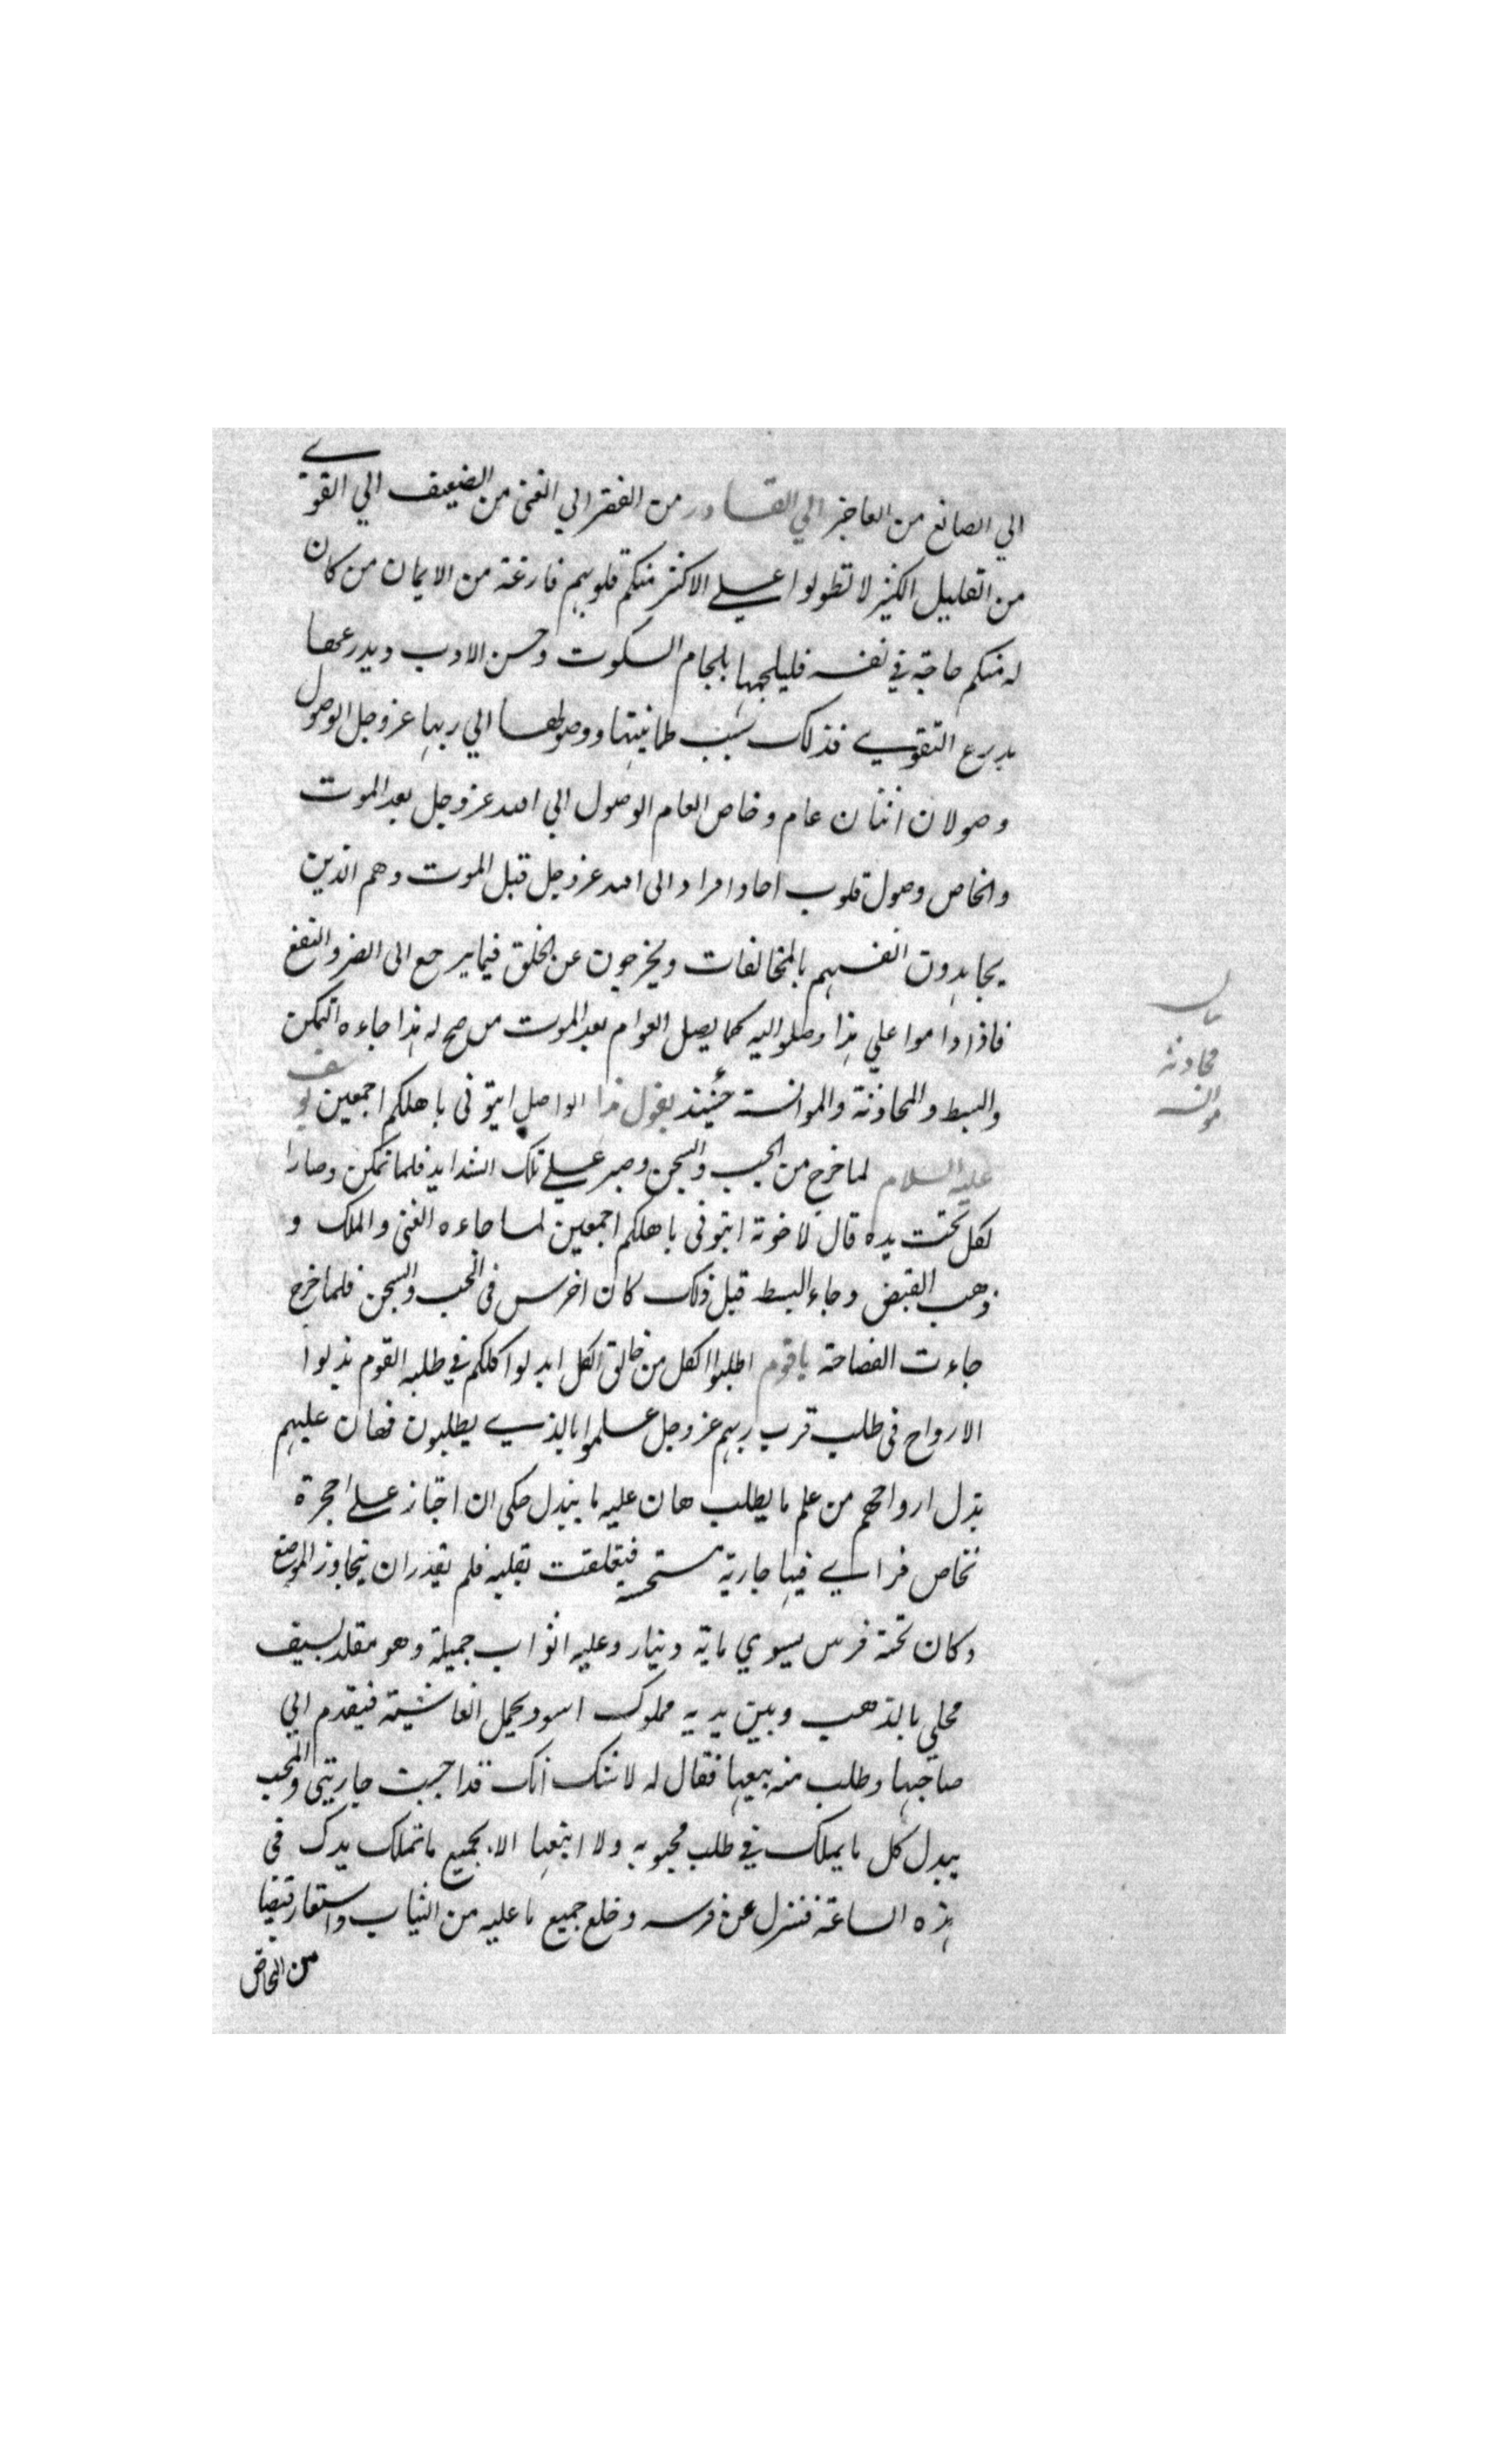 الي الصانع من العاجز الي القادر من الفقر الي الغنى من الضعيف الي القوي
من القليل الكثير لا تطولوا علي الاكثر منكم قلوبهم فارغة من الايمان من كان
له منكم حاجة في نفسه فليلجمها بلجام السكوت وحسن الادب ويدرعها
بدرع التقوي فذلك سبب طمانيتها ووصولها الي ربها عز وجل الوصول
وصولان اثنان عام وخاص العام الوصول الي الله عز وجل بعد الموت
والخاص وصول قلوب احاد افراد الى الله عز وجل قبل الموت وهم الذين
يجاهدون انفسهم بالمخالفات ويخرجون عن الخلق فيما يرجع الى الضر والنفع
فاذا داموا علي هذا وصلوا اليه كما يصل العوام بعد الموت من صح له هذا جاءه التمكن
والبسط والمحادثة والموانسة حينئذ يقول هذا الواصل ايتوني باهلكم اجمعين يوسف
عليه السلام لما خرج من الجب والسجن وصبر علي تلك الشدايد فلما تمكن وصار ا
لكل تحت يده قال لاخوته ايتوني باهلكم اجمعين لما جاءه الغنى والملك و
ذهب القبض وجاء البسط قبل ذلك كان اخرس في الجب والسجن فلما خرج
جاءت الفصاحة ياقوم اطلبوا الكل من خالق الكل ابدلوا كلكم في طلبه القوم بذلوا
الارواح في طلب قرب ربهم عز وجل علموا بالذي يطلبون فهان عليهم
بذل ارواحهم من علم ما يطلب هان عليه ما يبذل حكى ان اجتاز علي حجرة
نخاس فراي فيها جارية مستحسنة فتعلقت بقلبه فلم يقدر ان يتجاوز الموضع
وكان تحته فرس يسوي ماية دينار وعليه اثواب جميلة وهو مقلد بسيف
محلي بالذهب وبين يديه مملوك اسود يحمل الغاشية فتقدم الي
صاحبها وطلب منه بيعها فقال له لا شك انك قد احببت جاريتي والمحب
يبدل كل ما يملك في طلب محبوبه ولا ابيعها الا بجميع ما تملك يدك في
هذه الساعة فنزل عن فرسه وخلع جميع ما عليه من الثياب واستعار قيضا
من النخاس
محادثة
موانسه